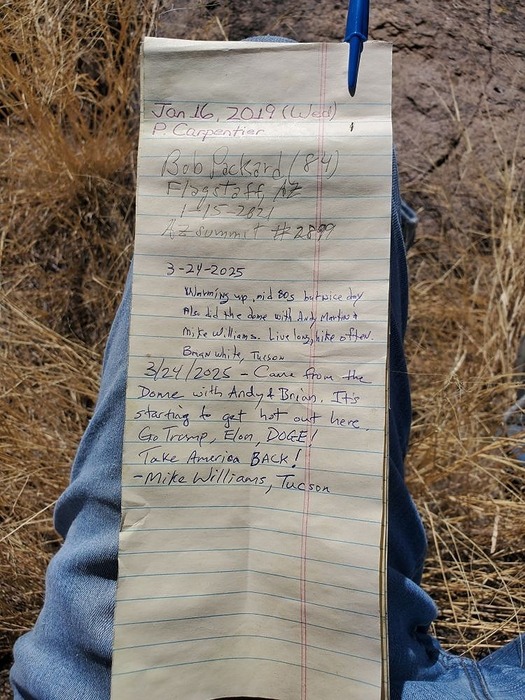 Jan 16, 2019 (Wed)
P. Carpentier
Bob Packard (84)
Flagstaff, AZ
1-15-2021
AZ summit #2899
3-24-2025
Warming up, mid 80s but nice day
Also did the dome with Andy Martin &
Mike Williams. Live long, hike often.
Brian White, Tucson
3/24/2025 - Came from the
Dome with Andy & Brian. It's
starting to get hot out here.
Go Trump, Elon, DOGE!
Take America BACK!
-Mike Williams, Tucson